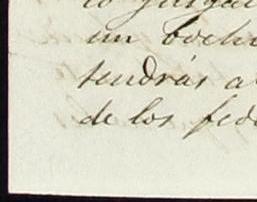 lo juzgar
un boche
tendrás a
de los fede